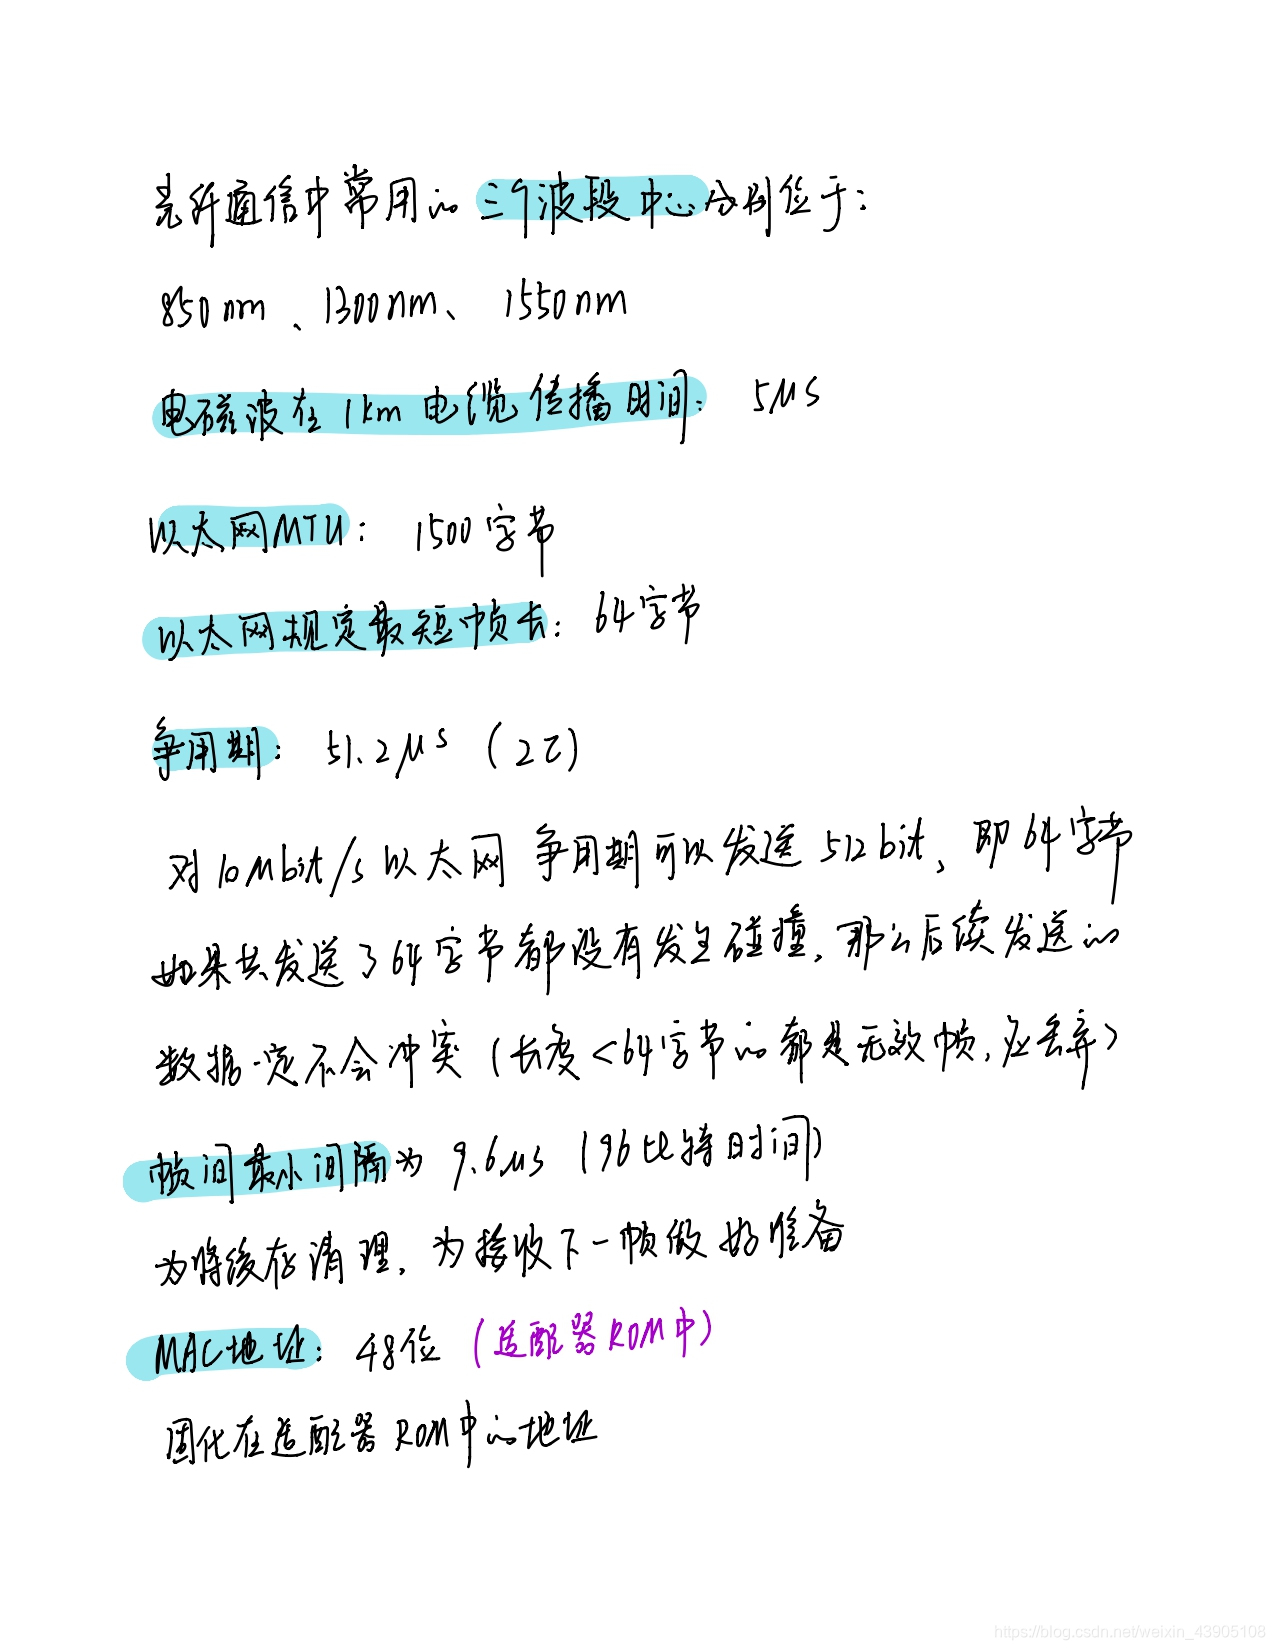 光纤通信中常用的三个波段中心分别位于：
850nm、1300nm、1550nm
电磁波在1km电缆传播时间： 5μs
以太网MTU： 1500字节
以太网规定最短帧长： 64字节
争用期： 51.2μs（2τ）
对10Mbit/s以太网 争用期可以发送512bit，即64字节
如果共发送了64字节都没有发生碰撞，那么后续发送的
数据一定不会冲突（长度<64字节的都是无效帧，应丢弃）
帧间最小间隔为 9.6μs（96比特时间）
为将缓存清理，为接收下一帧做好准备
MAC地址： 48位（适配器ROM中）
固化在适配器ROM中的地址
https://blog.csdn.net/weixin_43905108